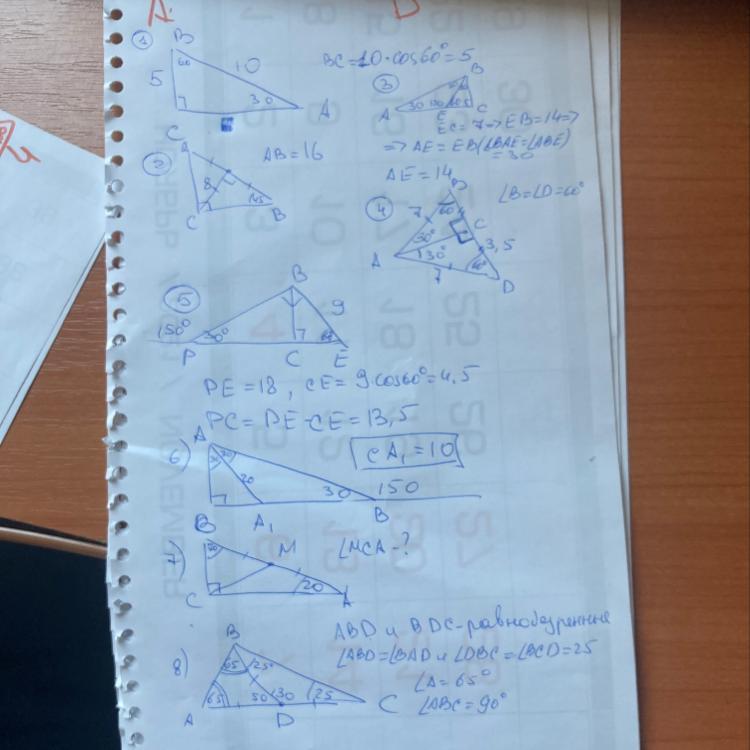 1
B
60
5
10
30
A
C
BC = 10·cos60° = 5
3
B
A
30
E
C
EC = 7 => EB = 14 =>
=> AE = EB (∠BAE = ∠ABE)
= 30
AE = 14
2
A
8
45
C
B
AB = 16
4
B
60
7
C
30°
30°
3,5
A
7
60°
D
∠B = ∠D = 60°
5
B
9
150°
30°
60
P
C
E
PE = 18, CE = 9·cos60° = 4,5
PC = PE - CE = 13,5
6)
A
30
30
20
30
150
A₁
B
CA₁ = 10
7)
B
70
M
∠MCA - ?
20
C
A
8)
B
65
25°
65
50
130
25
A
D
C
ABD и BDC - равнобедренные
∠ABD = ∠BAD и ∠DBC = ∠BCD = 25
∠A = 65°
∠ABC = 90°